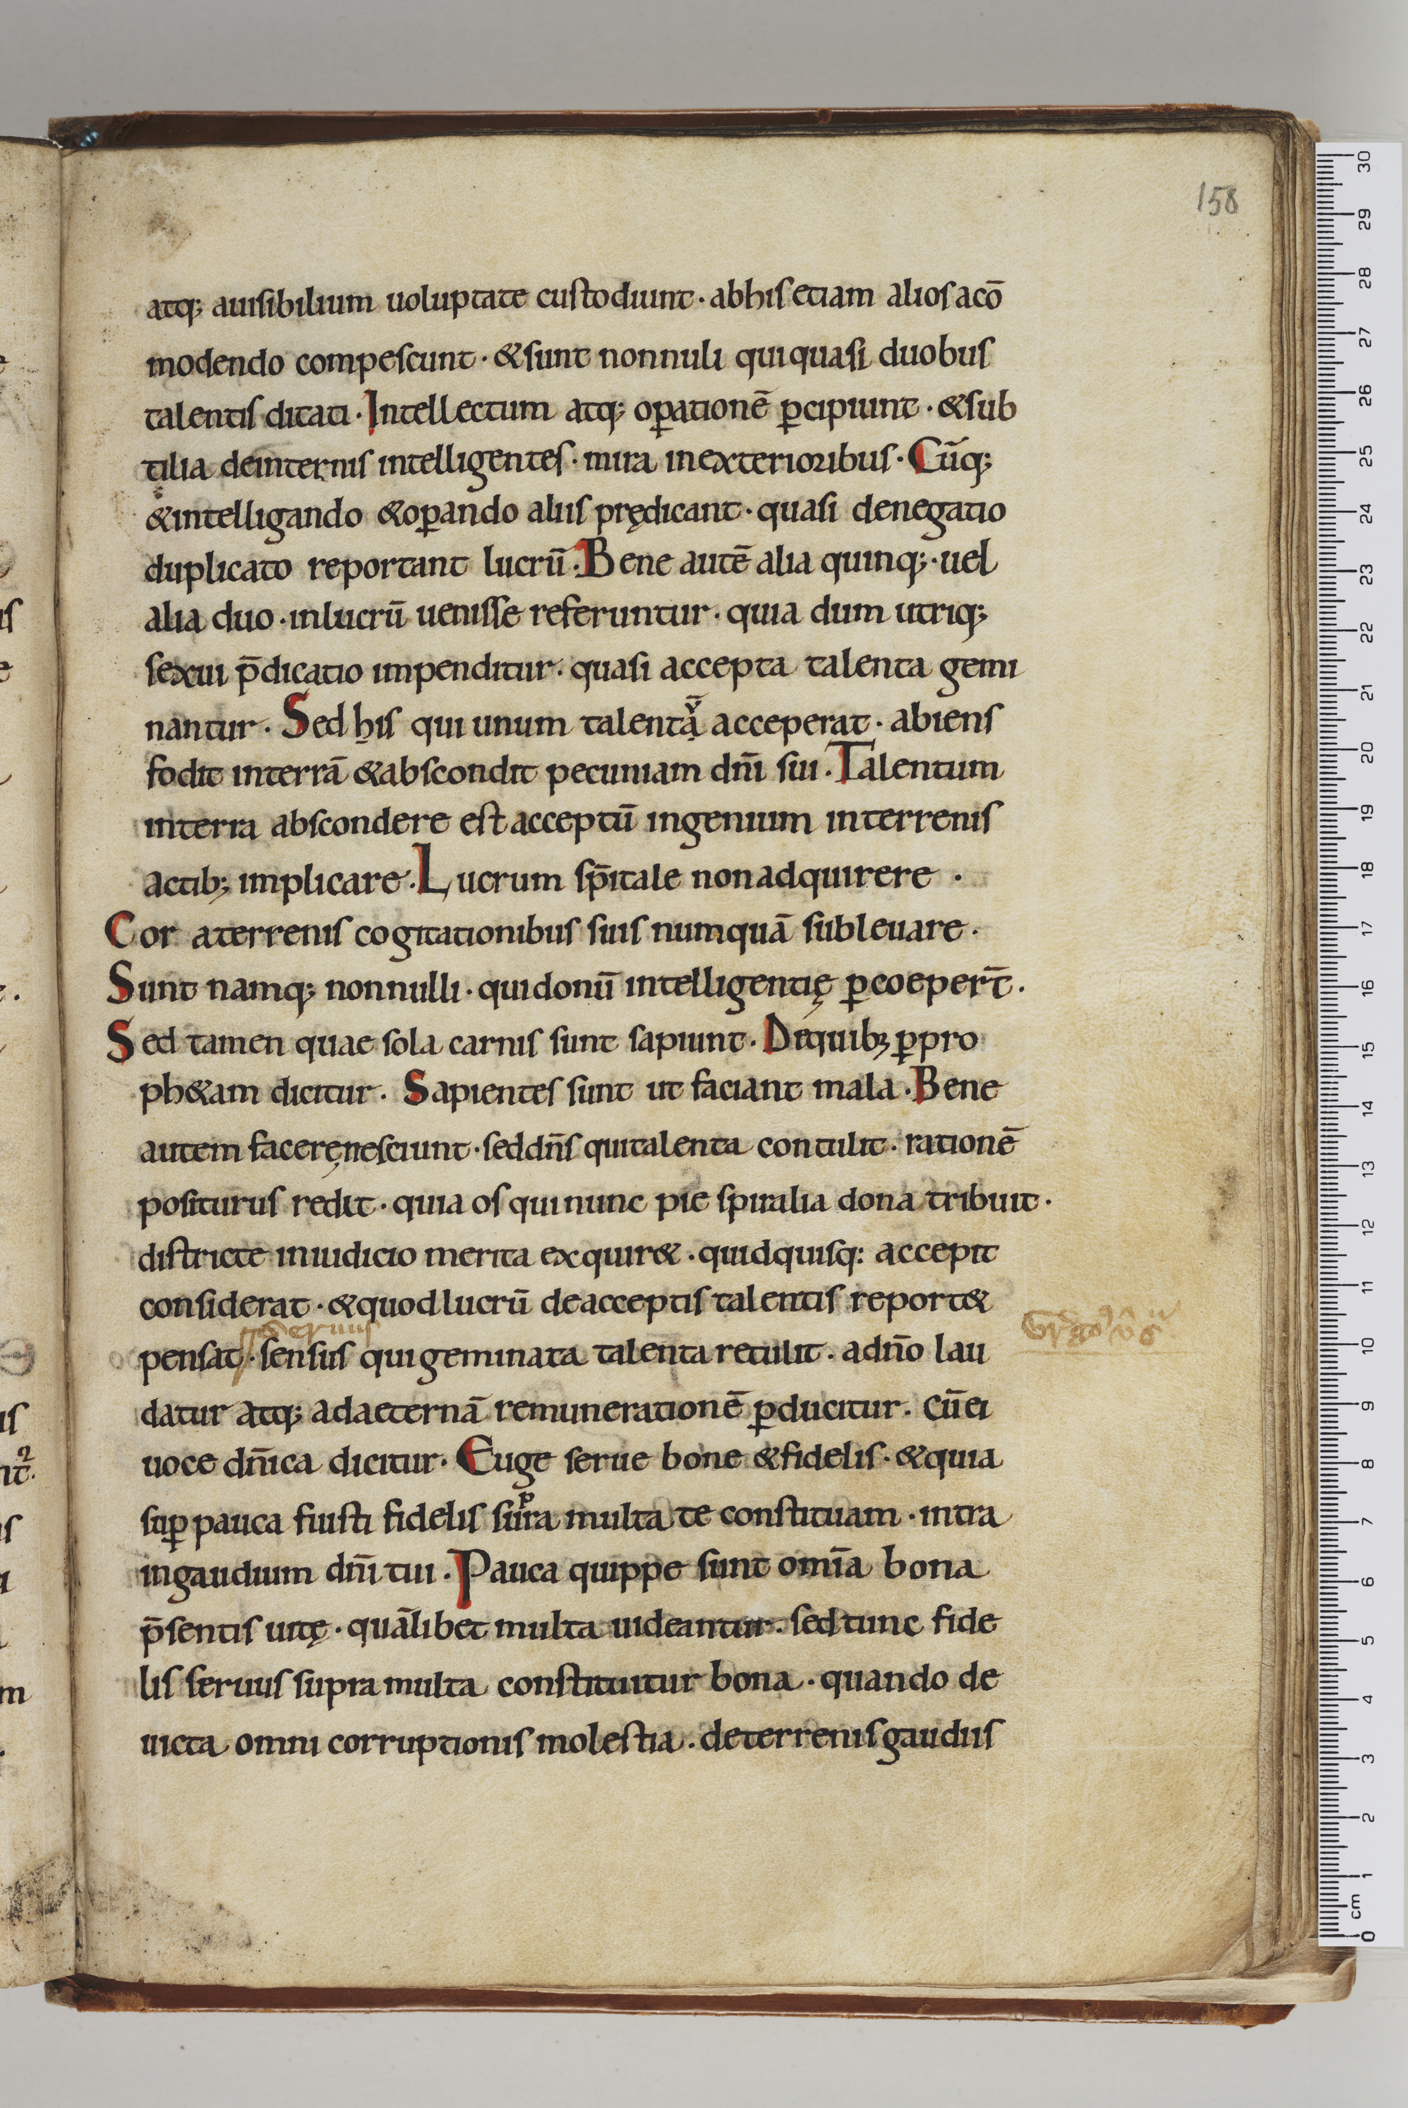 158
atq; auisibilium uoluptate custodiunt · abhis etiam alios acō
modendo compescunt · &sunt nonnuli qui quasi duobus
talentis ditati · Intellectum atq; op̲ationē p̲cipiunt · &sub
tilia deinternis intelligentes · mira inexterioribus · Cūq;
&intelligando &op̲ando aliis prędicant · quasi denegatio
duplicato reportant lucrū · Bene autē alia quinq; · uel
alia duo · inlucrū uenisse referuntur · quia dum utriq;
sexui p̄dicatio impenditur · quasi accepta talenta gemi
nantur · Sed his qui unum talentā acceperat · abiens
fodit interrā &abscondit pecuniam dn̄i sui · Talentum
interra abscondere est acceptū ingenium interrenis
actib; implicare · Lucrum sp̄itale nonadquirere ·
Cor aterrenis cogitationibus suis numquā subleuare ·
Sunt namq; nonnulli · qui donū intelligentię p̲coepert̄ ·
Sed tamen quae sola carnis sunt sapiunt · Dequib; p̲pro
ph&am dicitur · Sapientes sunt ut faciant mala · Bene
autem facere nesciunt · sed dn̄s qui talenta contulit · rationē
positurus redit · quia os qui nunc pie spiralia dona tribuit ·
districte iniudicio merita exquir& · quid quisq: accepit
considerat · &quod lucrū deacceptis talentis report&
seruus
pensat · sensus qui geminata talenta retulit · adn̄o lau
datur atq; adaeternā remunerationē p̲ducitur · cū ei
uoce dn̄ica dicitur · Euge serue bone &fidelis · &quia
sup̲ pauca fiusti fidelis supra multa te constituam · intra
ingaudium dn̄i tui · Pauca quippe sunt om̄ia bona
p̄sentis uitę · quālibet multa uideantur · sed tunc fide
lis seruus supra multa constituitur bona · quando de
uicta omni corruptionis molestia · deterrenis gaudiis